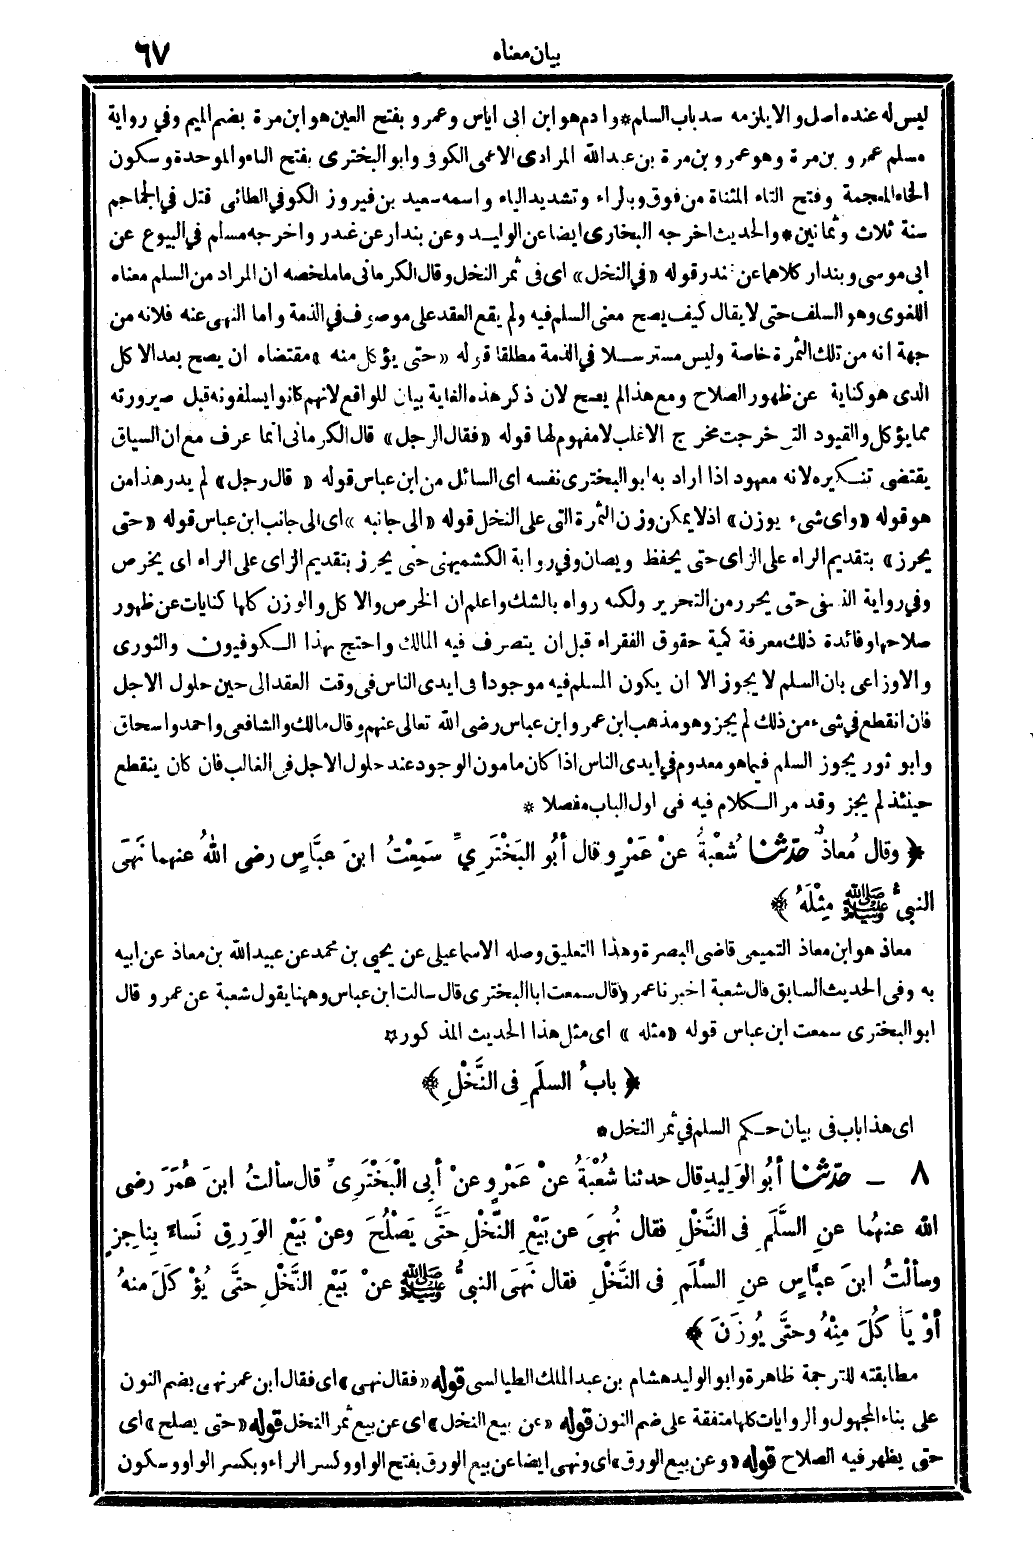 بيان معناه
٦٧
ليس له عنده اصل والا يلزمه سد باب السلم * وادم هو ابن ابى اياس وعمرو بفتح العين هو ابن مرة بضم الميم وفي رواية
مسلم عمرو بن مرة وهو عمرو بن مرة بن عبدالله المرادى الاعمى الكوفى وابو البخترى بفتح الباء الموحدة وسكون
الخاء المعجمة وفتح التاء المثناة من فوق وبالراء وتشديد الياء واسمه سعيد بن فيروز الكوفي الطائى قتل في الجماجم
سنة ثلاث وثمانين * والحديث اخرجه البخارى ايضا عن الوليد وعن بندار عن غندر واخرجه مسلم في البيوع عن
ابى موسى وبندار كلاهما عن غندر قوله « في النخل » اى فى ثمر النخل وقال الكرمانى ما ملخصه ان المراد من السلم معناه
اللغوى وهو السلف حتى لا يقال كيف يصح معنى السلم فيه ولم يقع العقد على موصوف في الذمة واما النهى عنه فلانه من
جهة انه من تلك الثمرة خاصة وليس مسترسلا في الذمة مطلقا قوله « حتى يؤكل منه » مقتضاه ان يصح بعد الاكل
الذى هو كناية عن ظهور الصلاح ومع هذا لم يصح لان ذكر هذه الغاية بيان للواقع لانهم كانوا يسلفونه قبل صيرورته
مما يؤكل والقيود التى خرجت مخرج الاغلب لا مفهوم لها قوله « فقال الرجل » قال الكرمانى انما عرف مع ان السياق
يقتضى تنكيره لانه معهود اذا اراد به ابو البخترى نفسه اى السائل من ابن عباس قوله « قال رجل » لم يدر هذا من
هو قوله « واى شىء يوزن » اذ لا يمكن وزن الثمرة التى على النخل قوله « الى جانبه » اى الى جانب ابن عباس قوله « حتى
يحرز » بتقديم الراء على الزاى حتى يحفظ ويصان وفي رواية الكشميهنى حتى يحزر بتقديم الزاى على الراء اى يخرص
وفي رواية النسفى حتى يحرر من التحرير ولكنه رواه بالشك واعلم ان الخرص والاكل والوزن كلها كنايات عن ظهور
صلاحها وفائدة ذلك معرفة كمية حقوق الفقراء قبل ان يتصرف فيه المالك واحتج بهذا الكوفيون والثورى
والاوزاعى بان السلم لا يجوز الا ان يكون المسلم فيه موجودا فى ايدى الناس فى وقت العقد الى حين حلول الاجل
فان انقطع في شىء من ذلك لم يجز وهو مذهب ابن عمر وابن عباس رضى الله تعالى عنهم وقال مالك والشافعى واحمد واسحاق
وابو ثور يجوز السلم فيما هو معدوم في ايدى الناس اذا كان مامون الوجود عند حلول الاجل فى الغالب فان كان ينقطع
حينئذ لم يجز وقد مر الكلام فيه فى اول الباب مفصلا *
﴿ وقال مُعاذٌ حدّثنا شُعْبةُ عنْ عَمْرٍو قال أبُو البَخْتَرِيِّ سَمِعْتُ ابنَ عبَّاسٍ رضى اللهُ عنهما نَهَى
النبىُّ ﷺ مِثْلَهُ ﴾
معاذ هو ابن معاذ التميمى قاضى البصرة وهذا التعليق وصله الاسماعيلى عن يحيى بن محمد عن عبيد الله بن معاذ عن ابيه
به وفى الحديث السابق قال شعبة اخبرنا عمرو قال سمعت ابا البخترى قال سالت ابن عباس وههنا يقول شعبة عن عمرو قال
ابو البخترى سمعت ابن عباس قوله « مثله » اى مثل هذا الحديث المذكور *
﴿ بابُ السلَمِ فى النَّخْلِ ﴾
اى هذا باب فى بيان حكم السلم في ثمر النخل *
٨ ـ حدّثنا أبُو الوَلِيدِ قال حدثنا شُعْبَةُ عنْ عَمْرٍو عنْ أبِى الْبَخْتَرِىِّ قال سألتُ ابنَ عُمَرَ رضى
الله عنهُما عنِ السَّلَمِ فى النَّخْلِ فقال نُهِىَ عن بَيْعِ النخْلِ حَتَّى يَصْلُحَ وعنْ بَيْعِ الوَرِقِ نَساءً بِناجِزٍ
وسألْتُ ابنَ عبَّاسٍ عنِ السَّلَمِ فى النَّخْلِ فقال نَهَى النبىُّ ﷺ عنْ بَيْعِ النَّخْلِ حتَّى يُؤْكَلَ منهُ
أوْ يَأْكُلَ مِنْهُ وحتَّى يُوزَنَ ﴾
مطابقته للترجمة ظاهرة وابو الوليد هشام بن عبد الملك الطيالسى قوله « فقال نهى » اى فقال ابن عمر نهى بضم النون
على بناء المجهول والروايات كلها متفقة على ضم النون قوله « عن بيع النخل » اى عن بيع ثمر النخل قوله « حتى يصلح » اى
حتى يظهر فيه الصلاح قوله « وعن بيع الورق » اى ونهى ايضا عن بيع الورق بفتح الواو وكسر الراء وبكسر الواو وسكون